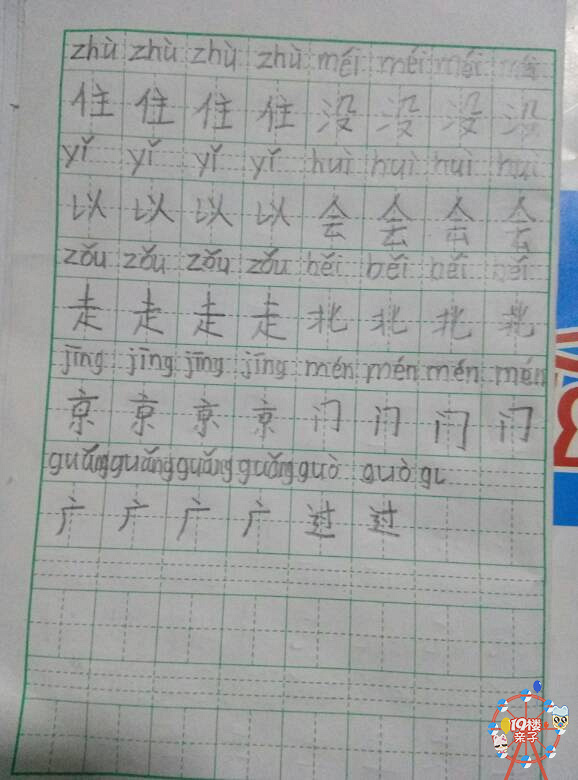 zhù zhù zhù zhù méi méi méi
住 住 住 住 没 没 没 没
yǐ yǐ yǐ yǐ huì huì huì huì
以 以 以 以 会 会 会 会
zǒu zǒu zǒu zǒu běi běi běi běi
走 走 走 走 北 北 北 北
jīng jīng jīng jīng mén mén mén mén
京 京 京 京 门 门 门 门
guǎng guǎng guǎng guǎng guò guò gu
广 广 广 广 过 过
19楼
亲子